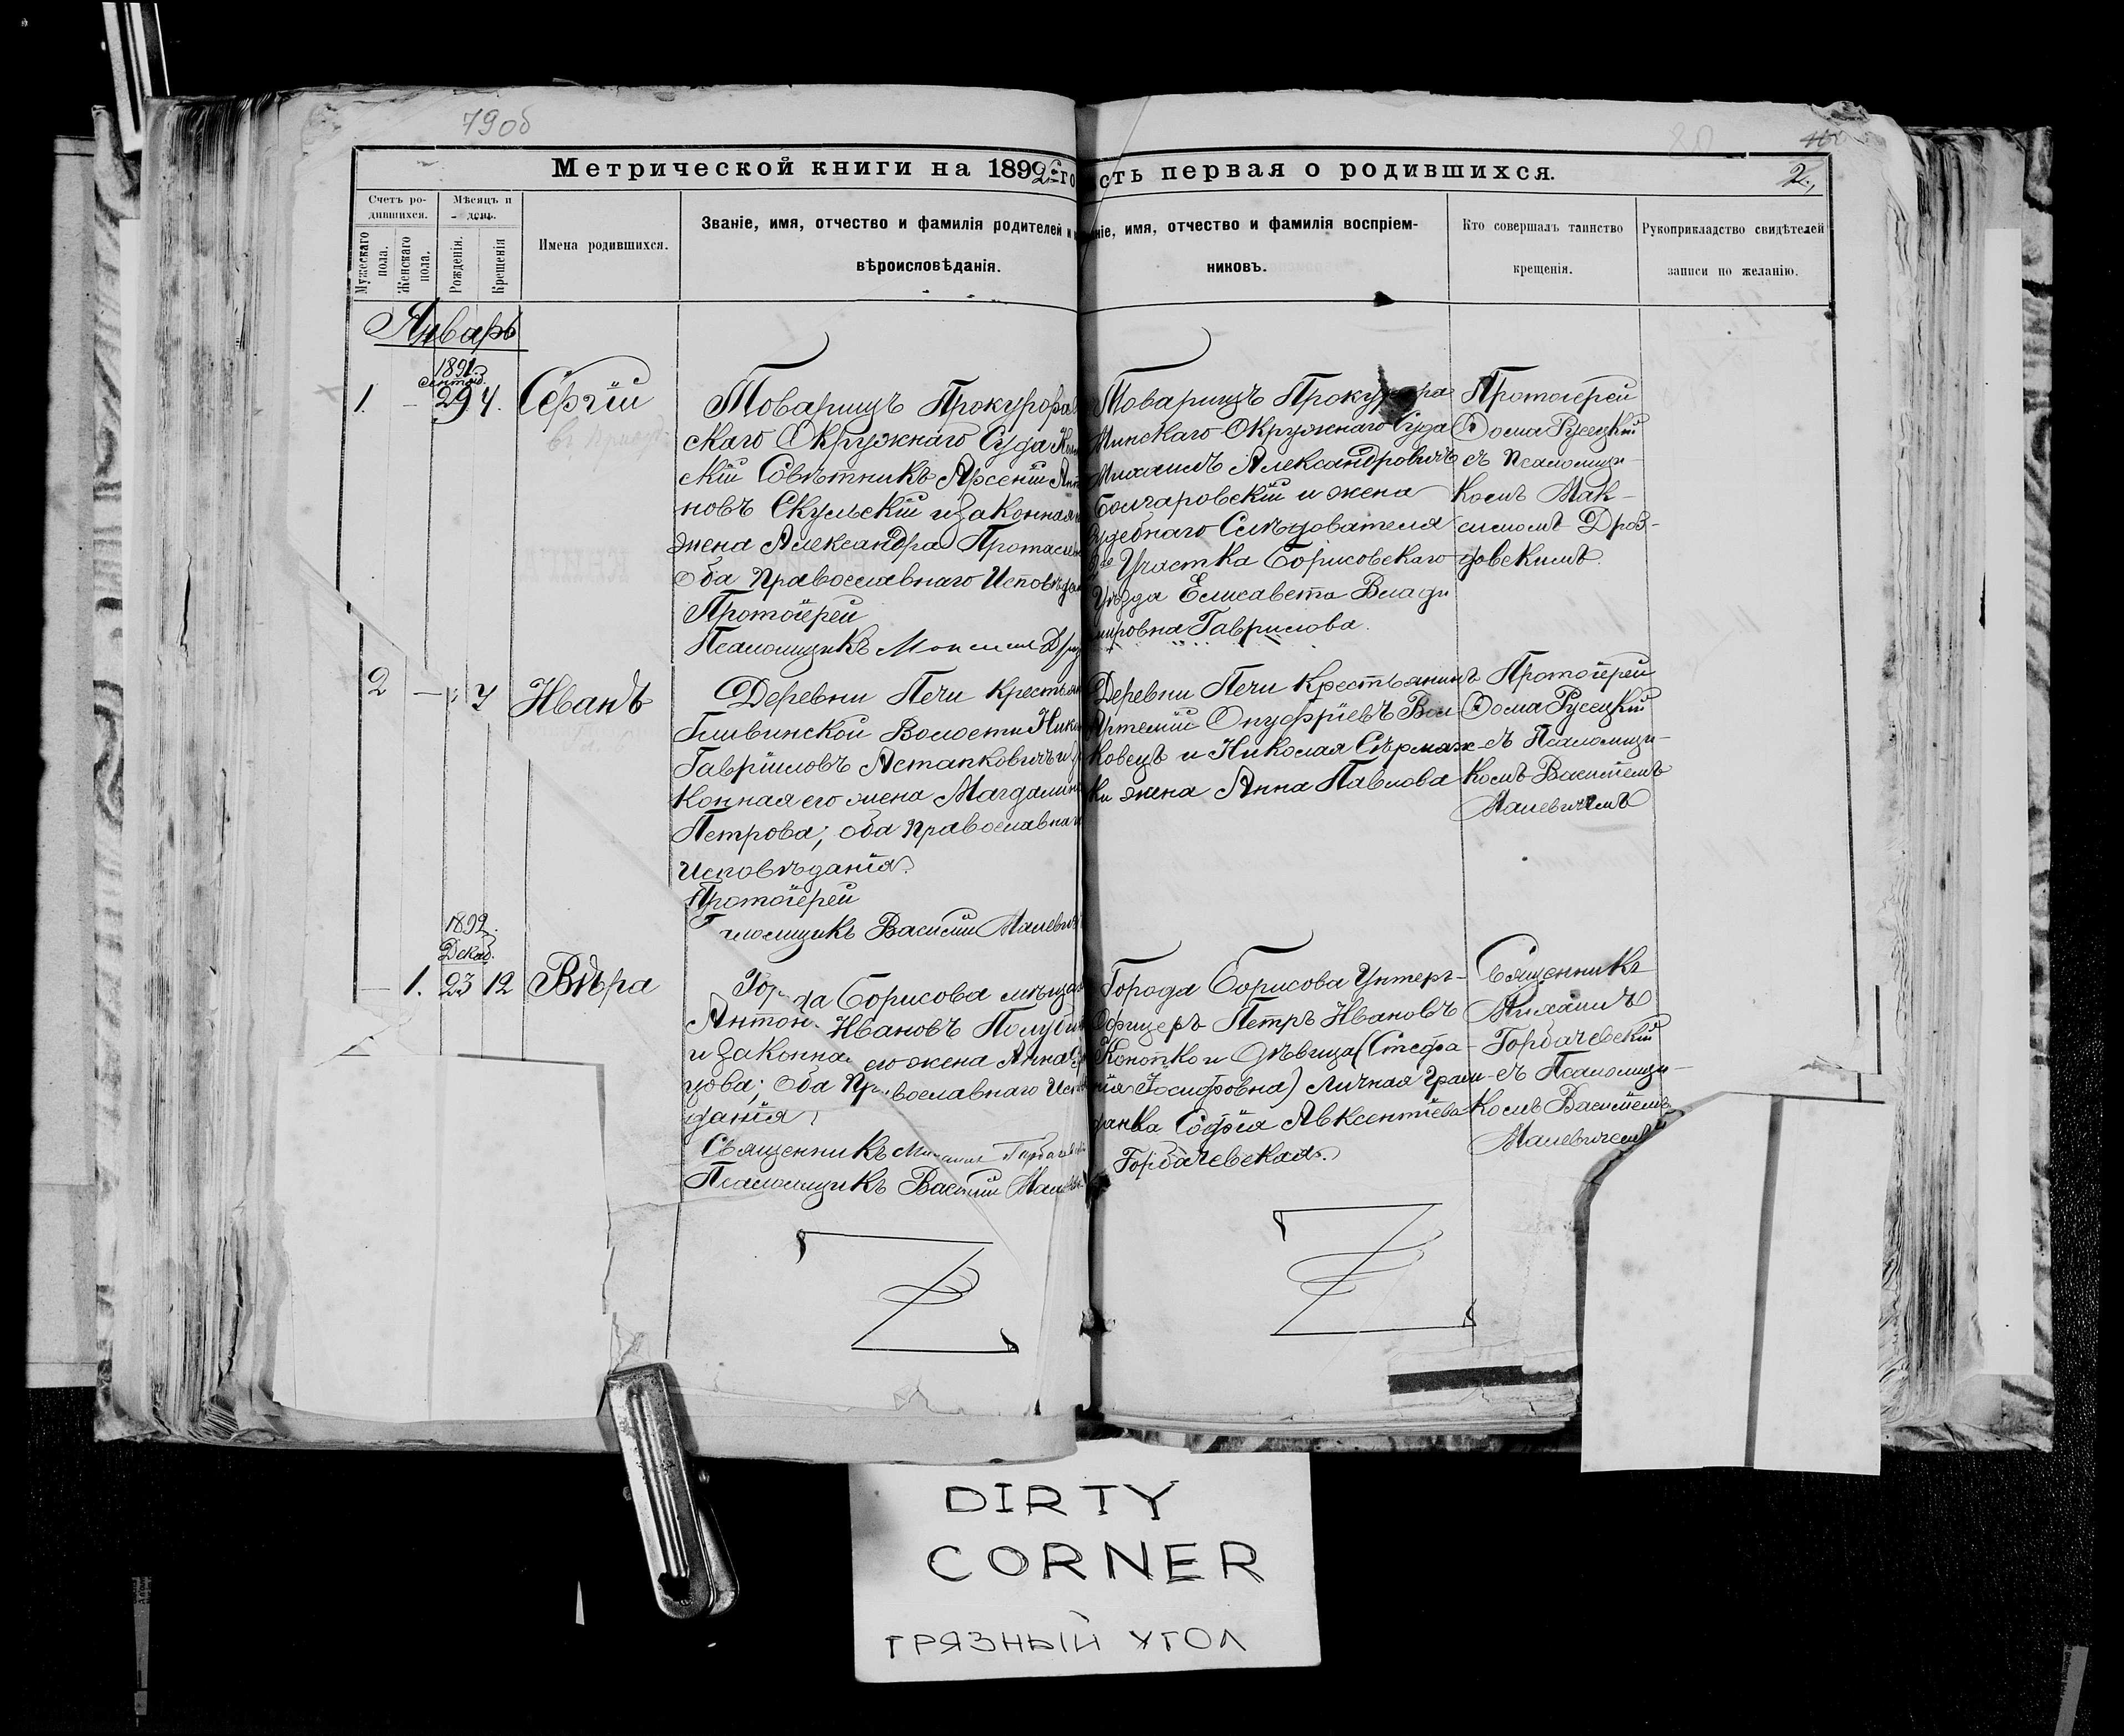 79об
80
Метрической книги на 1892 го
сть первая о родившихся.
2.
Счетъ ро-
дившихся.
Мѣсяцъ и
день.
Мужескаго
пола.
Женскаго
пола.
Рожденія.
Крещенія
Имена родившихся.
Званіе, имя, отчество и фамилія родителей и
вѣроисповѣданія.
ніе, имя, отчество и фамилія воспріем-
никовъ.
Кто совершалъ таинство
крещенія.
Рукоприкладство свидѣтелей
записи по желанію.
Январь
1891.
1. — 29 4. Сергій
Товарищъ Прокурора
скаго Окружнаго Суда
скій Совѣтникъ Арсеній Ант
новъ Скульскій и законная
жена Александра
Оба Православнаго Исповѣда
Протоіерей
Псаломщикъ
Товарищъ Прокурора
Минскаго Окружнаго Суда
Михаилъ Александровичъ
Болгаровскій и жена
Судебнаго Слѣдователя
2го Участка Борисовскаго
Уѣзда Елисавета Влади
мировна Гаврилова.
Протоіерей
Ѳома Русецкій
съ Псаломщи-
комъ Мак-
симомъ Дроз-
довскимъ.
2 — 7 Иванъ
Деревни Печи Крестьян
Гливинской Волости
Гавріиловъ Астапковичъ и
конная его жена Магдалина
Петрова; оба Православнаг
Исповѣданія.
Протоіерей
ломщикъ Василій Малевич
Деревни Печи Крестьянинъ
Артемій Онуфріевъ Вол-
ковецъ и Николая Сѣрмяж-
ки жена Анна Павлова
Протоіерей
Ѳома Русецкій
съ Псаломщи-
комъ Василіемъ
Малевичемъ
1892.
Декаб.
— 1. 23 12 Вѣра
Го да Борисова мѣщан
Антон Ивановъ
и законна его жена Анна
цова; Оба Православнаго Исп
данія.
Священникъ Михаилъ Горбачевскій
Псаломщикъ Василій Малев
Города Борисова Унтеръ-
Офицеръ Петръ Ивановъ
Конопко и Дѣвица (Стефа-
нія Іосифовна) личная граж-
данка Софія Авксентіева
Горбачевская.
Священникъ
Михаилъ
Горбачевскій
съ Псаломщи-
комъ Василіемъ
Малевичемъ
DIRTY
CORNER
ГРЯЗНЫЙ УГОЛ